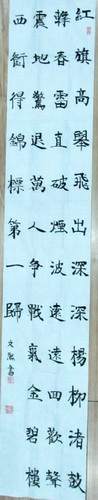 紅旗高舉飛出深深楊柳渚鼓
鼙春雷直破煙波遠遠回歡聲
震地驚退萬人爭戰氣金碧樓
西銜得錦標第一歸
文然書